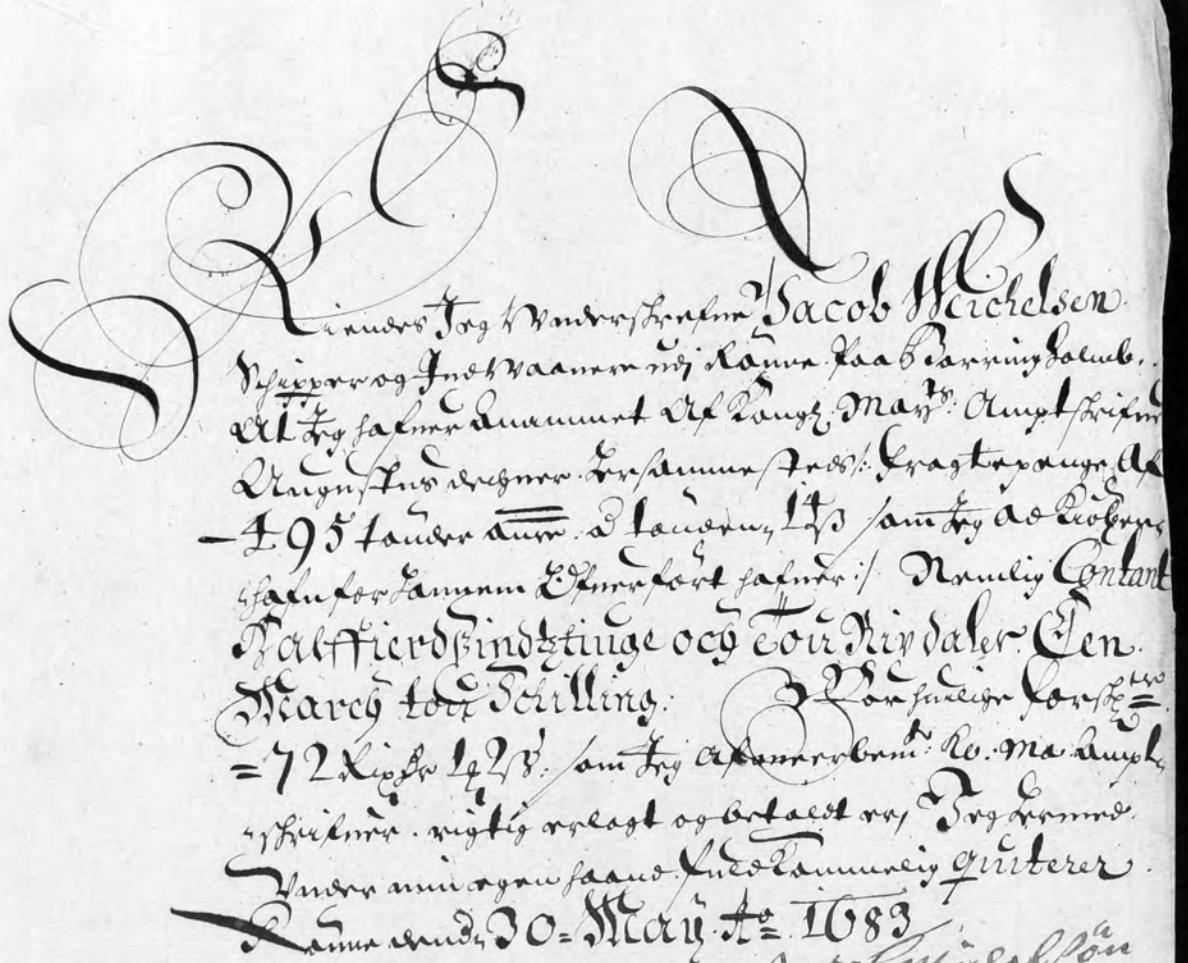 Kiendes Jeg Vnderskrefne Jacob Michelsen
Schipper og Indvaanere udj Rønne Paa Borringholmb.
At Jeg hafuer Anammet Af Kongl: Mayts: Amptskrifuer
Augustus dechner hersammesteds: Fragtepenge Af
495 tønder aure a tønden 14 ß som Jeg ad Kiøben
hafn for hannem Ofuerført hafuer :/ Nemlig Contant
Halffierdsindstiuge och tou Rixdaler Een
March tou Schilling. For huilche forskr:
=72 Rixdr 1 ₻ 2 ß: som Jeg Af meerbemte: Ko: Ma: Ampt
schrifuer. rigtig erlagt og betaldt er, Jeg hermed
Vnder min egen haand fuldkommelig quiterer
Rønne dend 30 = May Ao 1683